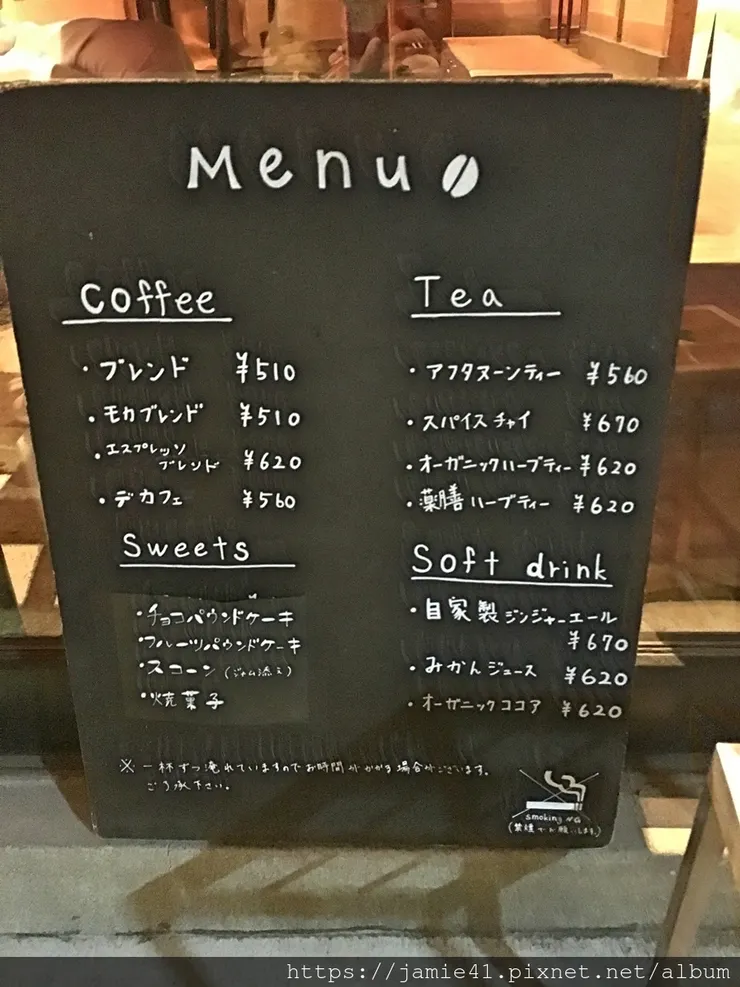 Menu
Coffee
・ブレンド ¥510
・モカブレンド ¥510
・エスプレッソ
ブレンド ¥620
・デカフェ ¥560
Sweets
・チョコパウンドケーキ
・フルーツパウンドケーキ
・スコーン(ジャム添え)
・焼菓子
Tea
・アフタヌーンティー ¥560
・スパイスチャイ ¥670
・オーガニックハーブティー ¥620
・薬膳ハーブティー ¥620
Soft drink
・自家製ジンジャーエール
¥670
・みかんジュース ¥620
・オーガニックココア ¥620
※一杯ずつ淹れていますのでお時間がかかる場合がございます。
ご了承下さい。
smoking NG
(禁煙でお願いします。)
https://jamie41.pixnet.net/album